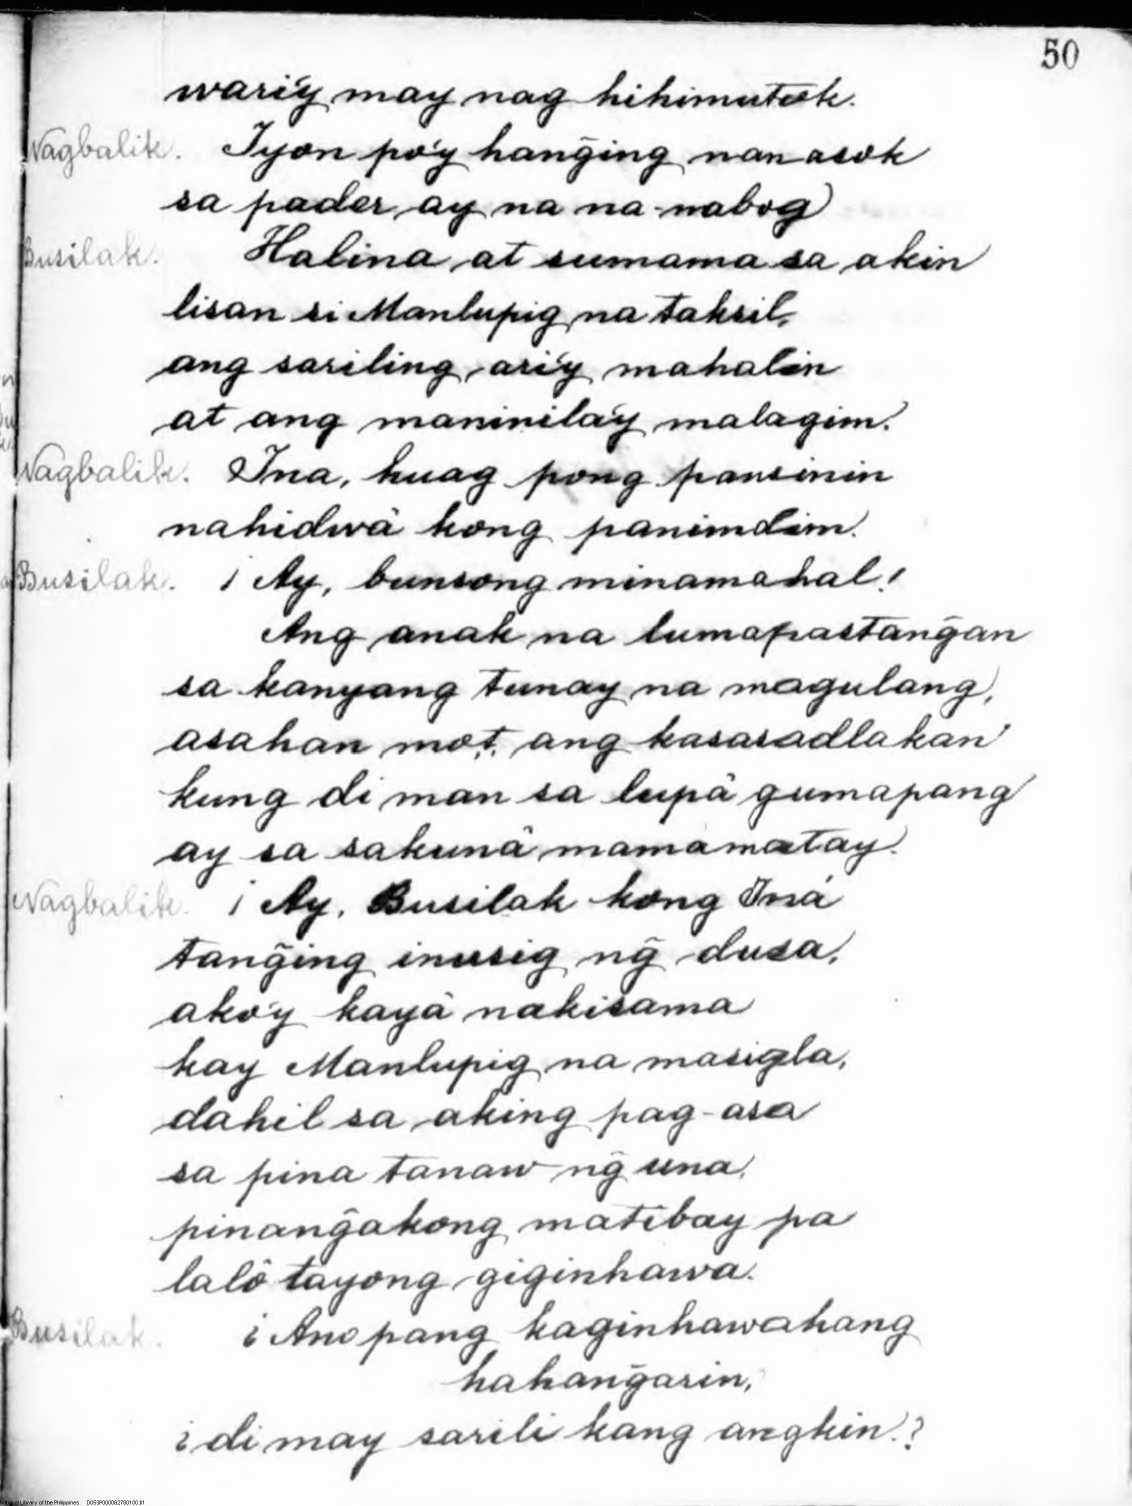 50
wari'y may nag hihimutok.
Nagbalik. Iyon po'y hang̃ing nan asok
sa pader ay na na-nabog
Busilak. Halina at sumama sa akin
lisan si Manlupig na taksil,
ang sariling ari'y mahalin
at ang maninila'y malagim.
Nagbalik. Ina, huag pong pansinin
nahidwâ kong panimdim.
Busilak. ¡Ay, bunsong minamahal!
Ang anak na lumapastang̃an
sa kanyang tunay na magulang,
asahan mo't, ang kasasadlakan
kung di man sa lupâ gumapang
ay sa sakunâ mamamatay.
Nagbalik. ¡Ay, Busilak kong Iná
tang̃ing inusig ng̃ dusa,
ako'y kayâ nakisama
kay Manlupig na masigla,
dahil sa aking pag-asa
sa pina tanaw ng̃ una,
pinang̃akong matibay pa
lalô tayong giginhawa.
Busilak. ¿Ano pang kaginhawahang
hahang̃arin,
¿di may sarili kang angkin?
National Library of the Philippines